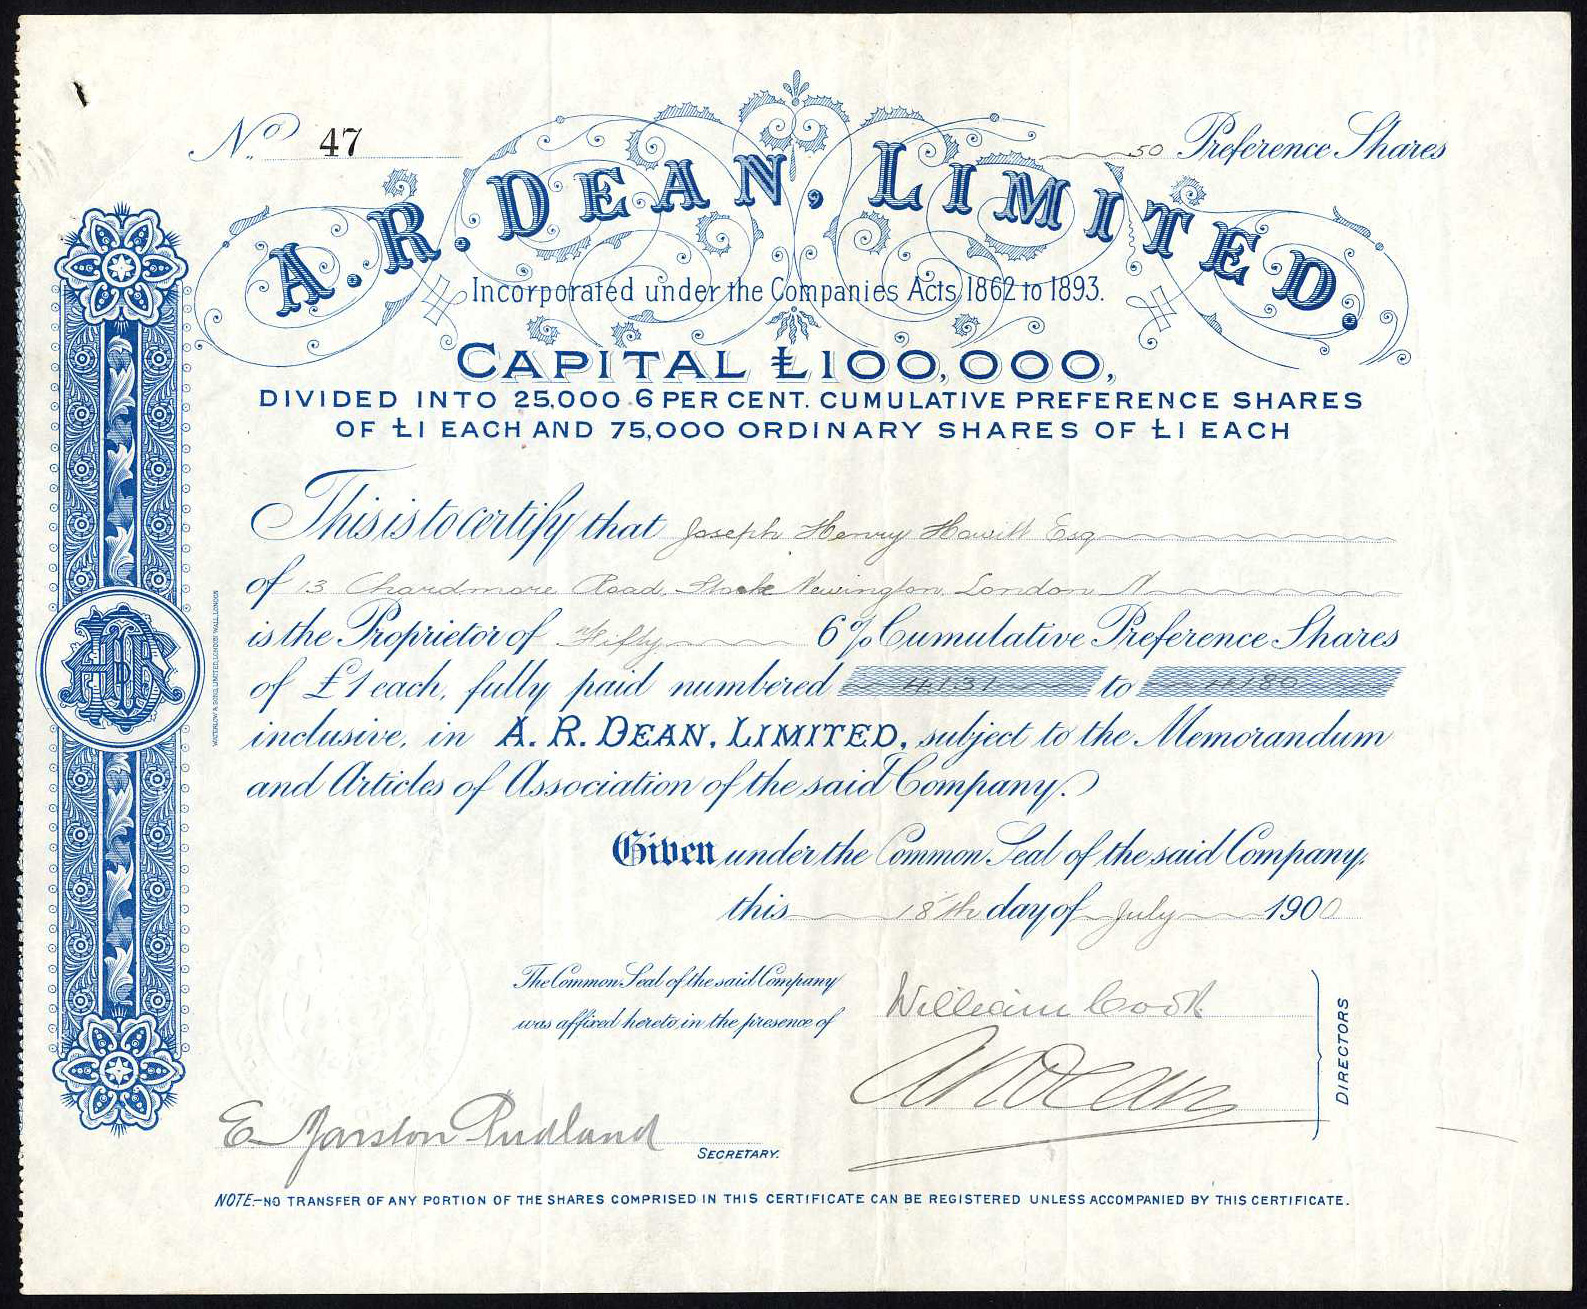 No. 47
50 Preference Shares
A. R. DEAN, LIMITED.
Incorporated under the Companies Acts, 1862 to 1893.
CAPITAL £100,000,
DIVIDED INTO 25,000 6 PER CENT. CUMULATIVE PREFERENCE SHARES
OF £1 EACH AND 75,000 ORDINARY SHARES OF £1 EACH
This is to certify that Joseph Henry Howitt Esq
of 13 Chardmore Road Stoke Newington London N
is the Proprietor of Fifty 6% Cumulative Preference Shares
of £1 each, fully paid numbered 4131 to 4180
inclusive, in A. R. DEAN, LIMITED, subject to the Memorandum
and Articles of Association of the said Company.
Given under the Common Seal of the said Company,
this 18th day of July 1900
The Common Seal of the said Company
was affixed hereto in the presence of
William Cook
A R Dean
DIRECTORS
E Marston Rudland
SECRETARY.
NOTE.—NO TRANSFER OF ANY PORTION OF THE SHARES COMPRISED IN THIS CERTIFICATE CAN BE REGISTERED UNLESS ACCOMPANIED BY THIS CERTIFICATE.
WATERLOW & SONS, LIMITED, LONDON WALL, LONDON